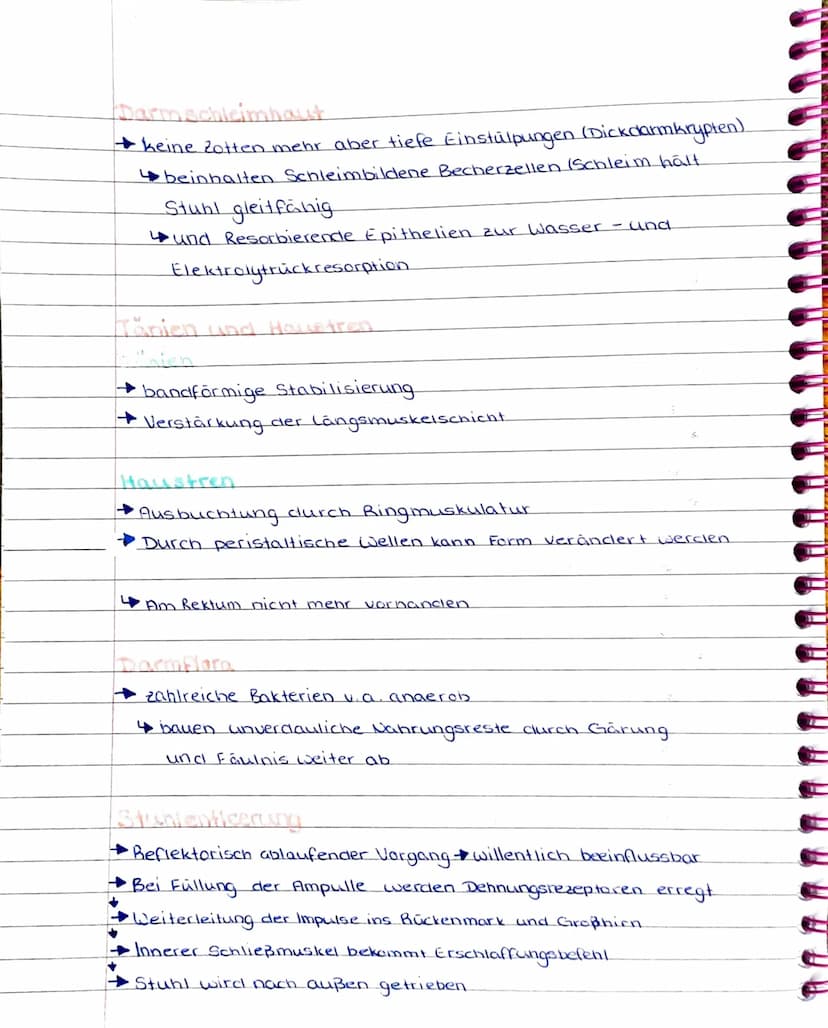 Darmschleimhaut
→ keine Zotten mehr aber tiefe Einstülpungen (Dickdarmkrypten)
↳ beinhalten Schleimbildene Becherzellen (Schleim hält
Stuhl gleitfähig
↳ und Resorbierende Epithelien zur Wasser - und
Elektrolytrückresorption
Tänien und Haustren
Tänien
→ bandförmige Stabilisierung
→ Verstärkung der Längsmuskelschicht
Haustren
→ Ausbuchtung durch Ringmuskulatur
→ Durch peristaltische Wellen kann Form verändert werden
↳ Am Rektum nicht mehr vorhanden
Darmflora
→ zahlreiche Bakterien v.a. anaerob
↳ bauen unverdauliche Nahrungsreste durch Gärung
und Fäulnis weiter ab
Stuhlentleerung
→ Reflektorisch ablaufender Vorgang → willentlich beeinflussbar
→ Bei Füllung der Ampulle werden Dehnungsrezeptoren erregt
↓
→ Weiterleitung der Impulse ins Rückenmark und Großhirn
↓
→ Innerer Schließmuskel bekommt Erschlaffungsbefehl
↓
→ Stuhl wird nach außen getrieben